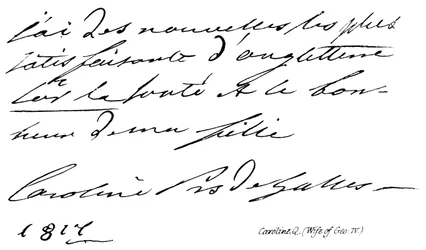 j'ai des nouvelles les plus
satisfaisante d'angletterre
sur la santé et le bon-
heur de ma fille
Caroline Prs de Galles —
1817
Caroline.Q. (Wife of Geo: IV.)